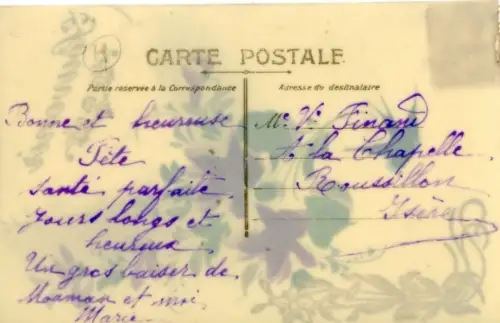 CARTE POSTALE
Partie réservée à la Correspondance
Adresse du destinataire
Bonne et heureuse
Fête
santé parfaite
Jours longs et
heureux
Un gros baiser de
Maman et moi
Marie
Mr Vr Finand
A la Chapelle
Roussillon
Isère